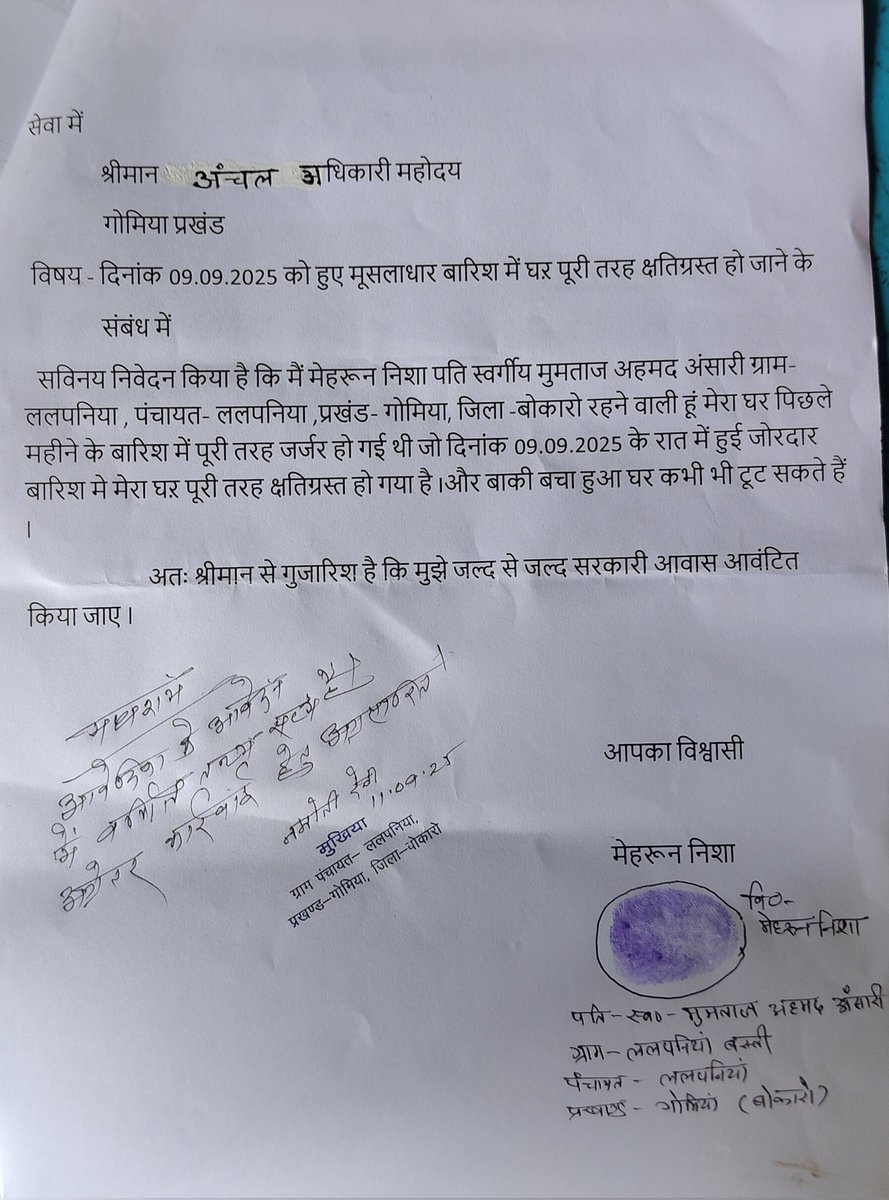 सेवा में
श्रीमान अंचल अधिकारी महोदय
गोमिया प्रखंड
विषय - दिनांक 09.09.2025 को हुए मूसलाधार बारिश में घऱ पूरी तरह क्षतिग्रस्त हो जाने के
संबंध में
सविनय निवेदन किया है कि मैं मेहरून निशा पति स्वर्गीय मुमताज अहमद अंसारी ग्राम-
ललपनिया , पंचायत- ललपनिया ,प्रखंड- गोमिया, जिला -बोकारो रहने वाली हूं मेरा घर पिछले
महीने के बारिश में पूरी तरह जर्जर हो गई थी जो दिनांक 09.09.2025 के रात में हुई जोरदार
बारिश मे मेरा घऱ पूरी तरह क्षतिग्रस्त हो गया है।और बाकी बचा हुआ घर कभी भी टूट सकते हैं
।
अतः श्रीमान से गुजारिश है कि मुझे जल्द से जल्द सरकारी आवास आवंटित
किया जाए।
आवेदिका के आवेदन
में वर्णित तथ्य सत्य है।
कार्रवाई हेतु अग्रसारित
देवी
11.09.25
मुखिया
ग्राम पंचायत- ललपनिया,
प्रखण्ड-गोमिया, जिला-बोकारो
आपका विश्वासी
मेहरून निशा
नि०-
मेहरून निशा
पति - स्व० - मुमताज अहमद अंसारी
ग्राम - ललपनियां बस्ती
पंचायत - ललपनियां
प्रखण्ड - गोमियां (बोकारो)